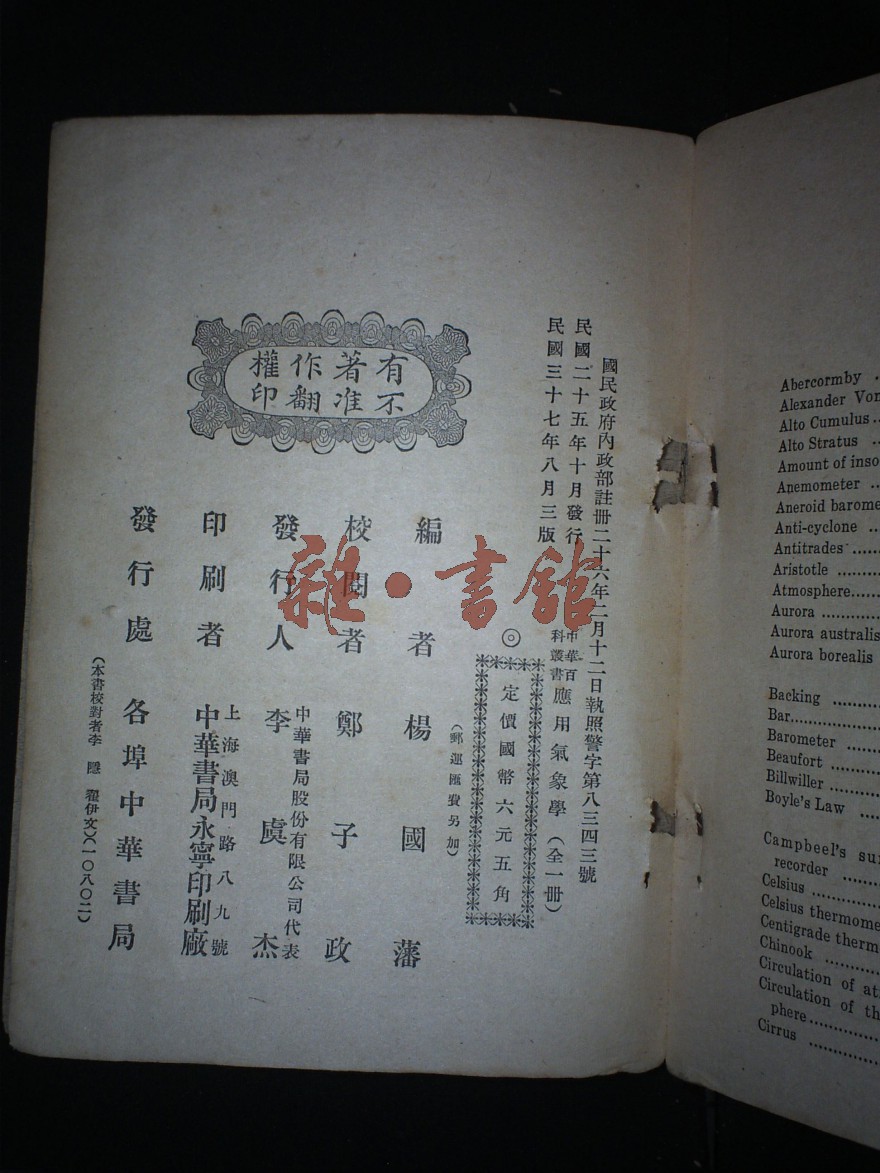 國民政府內政部註冊二十六年二月十二日執照警字第八三四三號
民國二十五年十月發行
民國三十七年八月三版
有著作權
不准翻印
中華百科叢書
應用氣象學(全一冊)
◎
定價國幣六元五角
(郵運匯費另加)
編者 楊國藩
校閱者 鄭子政
發行人 李虞杰
中華書局股份有限公司代表
印刷者 中華書局永寧印刷廠
上海澳門路八九號
發行處 各埠中華書局
(本書校對者李隱 翟伊文)(一〇八〇二)
雜·書館
Abercormby
Alexander Von
Alto Cumulus
Alto Stratus
Amount of inso
Anemometer
Aneroid barome
Anti-cyclone
Antitrades
Aristotle
Atmosphere
Aurora
Aurora australis
Aurora borealis
Backing
Bar
Barometer
Beaufort
Billwiller
Boyle's Law
Campbeel's sun
recorder
Celsius
Celsius thermome
Centigrade therm
Chinook
Circulation of at
Circulation of th
phere
Cirrus